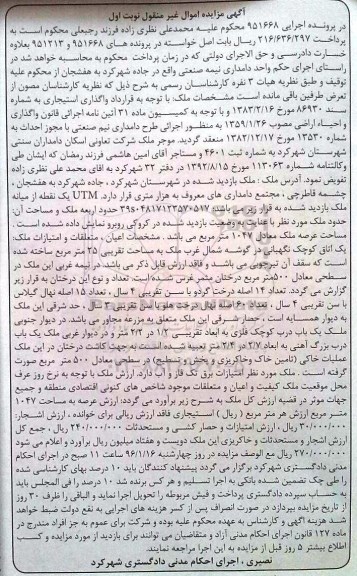 آگهی مزایده اموال غیر منقول نوبت اول
در پرونده اجرایی ۹۵۱۶۶۸ محکوم علیه محمدعلی نظری زاده فرزند رجبعلی محکوم است به
پرداخت ۲۱۶/۶۳۶/۲۹۷ ریال بابت اصل خواسته در پرونده های ۹۵۱۶۶۸ و ۹۵۱۲۱۳ بعلاوه
خسارت دادرسی و حق الاجرای دولتی که در زمان پرداخت محکوم به محاسبه خواهد شد در
راستای اجرای حکم واحد دامداری نیمه صنعتی واقع در جاده شهرکرد به هفشجان از محکوم علیه
توقیف و طبق نظریه هیات ۳ نفره کارشناسان رسمی به شرح ذیل که نظریه کارشناسان مصون از
تعرض طرفین باقی مانده است مشخصات ملک: با توجه به قرارداد واگذاری استیجاری به شماره
سند ۸۶۹۳۰ مورخ ۱۳۸۳/۲/۱۶ و با توجه به کمیسیون ماده ۳۱ آئین نامه اجرائی قانون واگذاری
و احیاء اراضی مصوب ۱۳۵۹/۱/۲۶ به منظور اجرائی طرح دامداری نیم صنعتی با مجوز احداث به
شماره ۱۳۵۳۰ مورخ ۱۳۸۲/۱۲/۱۷ منعقد گردید. موجر ملک شرکت تعاونی اسکان دامداران سنتی
شهرستان شهرکرد به شماره ثبت ۴۶۰۱ و مستاجر آقای امین هاشمی فرزند رمضان که ایشان طی
وکالتنامه شماره ۱۱۳۰۶۳ مورخ ۱۳۹۲/۸/۱۵ در دفتر ۳۲ شهرکرد به اقاله محمد علی نظری زاده
تفویض نمود. آدرس ملک: ملک بازدید شده در شهرستان شهرکرد، جاده شهرکرد به هفشجان،
چشمه قاطرچی، مجتمع دامداری های معروف به هزار متری قرار دارد. UTM یک نقطه از میانه
ملک بازدید شده به قرار زیر می باشد:
حدود ملک مورد نظر با عنایت به وضعیت بازدید شده در کروکی روبرو نمایش داده شده است.
مساحت عرصه ملک معادل ۱۰۴۷ متر مربع می باشد. مشخصات اعیان، متعلقات و امتیازات ملک:
یک اتاق کوچک نگهبانی در گوشه شمال غرب ملک به مساحت تقریبی ۲۵ متر مربع ساخته شده
است که سقف آن تیرچوبی می باشد و فاقد ارزش قابل ذکر می باشد. در نیمه غربی این ملک در
سطحی معادل ۵۰۰ متر مربع درختان مثمر غرس شده است: تعداد و نوع این درختان به قرار زیر
گزارش می گردد. تعداد ۱۴ اصله درخت گردو با سن تقریبی ۴ سال، تعداد ۱۵ اصله نهال گیلاس
با سن تقریبی ۴ سال، تعداد ۶۰ اصله نهال درخت هلو با سن تقریبی ۳ سال، حد شرقی این ملک
به دیوار همسایه است، حصار شرقی این ملک متعلق به مزرعه مجاور می باشد. در دیوار جنوبی
ملک یک باب درب کوچک فلزی به ابعاد تقریبی ۱/۲ در ۲/۳ متر و در دیوار غربی ملک یک باب
درب بزرگ آهنی به ابعاد ۲/۷ در ۲/۴ متر تعبیه شده است. به جهت کاشت درختان در این ملک
عملیات خاکی (تامین خاک وخاکریزی و پخش و تسطیح) در سطحی معادل ۵۰۰ متر مربع صورت
گرفته است. ملک مورد نظر امتیازات برق تک فاز و آب دارد. ارزش ملک با توجه به نرخ روز عرف
محل موقعیت ملک کیفیت و اعیان و متعلقات موجود شاخص های کنونی اقتصادی منطقه و جمیع
جهات موثر در قضیه ارزش کل ملک به شرح زیر برآورد می گردد: ارزش عرصه به مساحت ۱۰۴۷
متر مربع ارزش هر متر مربع ( ریال ) استیجاری فاقد ارزش ریالی برای خوانده، ارزش اشجار:
۳۰/۰۰۰/۰۰۰ ریال، ارزش امتیازات و حصار کشی و مستحدثات ۲۴۰/۰۰۰/۰۰۰ ریال، جمع کل
ارزش اشجار و مستحدثات و خاکریزی این ملک دویست و هفتاد میلیون ریال برآورد و اعلام می شود
۲۷۰/۰۰۰/۰۰۰ ریال مع الوصف مزایده در روز چهارشنبه ۹۶/۱/۱۶ ساعت ۱۱ صبح در اجرای احکام
مدنی دادگستری شهرکرد برگزار می گردد پیشنهاد کنندگان باید ۱۰ درصد بهای کارشناسی شده
را طی چک تضمین شده بانکی به اجرا تسلیم و هر کس برنده شد ۱۰ درصد را فی المجلس باید
به حساب سپرده دادگستری پرداخت و فیش مربوطه را تحویل اجرا نماید و الباقی را ظرف ۳۰ روز
از تاریخ مزایده بپردازد در صورت انصراف پس از کسر هزینه های اجرایی به نفع دولت ضبط خواهد
شد هزینه آگهی و کارشناس به عهده محکوم علیه بوده و شرکت برای عموم به جز افراد مندرج در
ماده ۱۲۷ قانون اجرای احکام مدنی آزاد و متقاضیان می توانند برای بازدید از مورد مزایده و کسب
اطلاع بیشتر ۵ روز قبل از مزایده به این اجرا مراجعه نمایند.
نصیری، اجرای احکام مدنی دادگستری شهرکرد